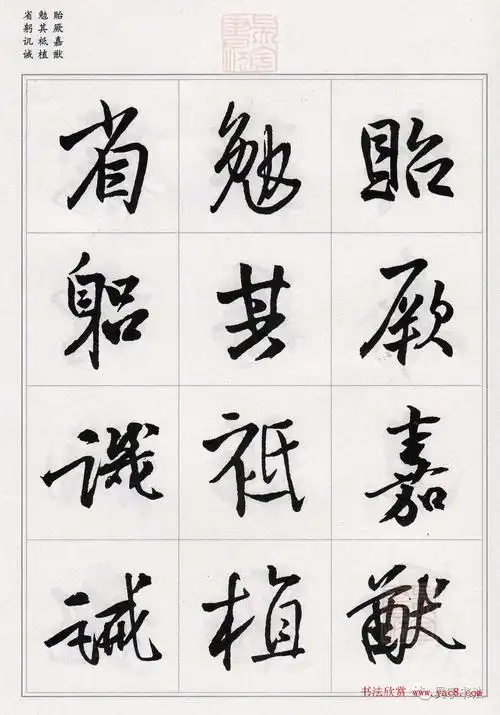 贻厥嘉猷
勉其祗植
省躬讥诫
貽厥嘉猷
勉其祗植
省躳譏誡
书法欣赏 www.yac8.com